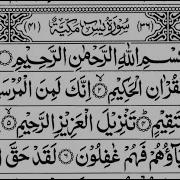 (٣٦) سُوْرَةُ يٰسٓ مَكِّيَّةٌ (٤١)
سْمِ اللهِ الرَّحْمٰنِ الرَّحِيْمِ
قُرْاٰنِ الْحَكِيْمِ ۙ﴿٢﴾ اِنَّكَ لَمِنَ الْمُرْسَ
تَقِيْمٍ ؕ﴿٤﴾ تَنْزِيْلَ الْعَزِيْزِ الرَّحِيْمِ ۙ﴿٥﴾
بَآؤُهُمْ فَهُمْ غٰفِلُوْنَ ﴿٦﴾ لَقَدْ حَقَّ ا